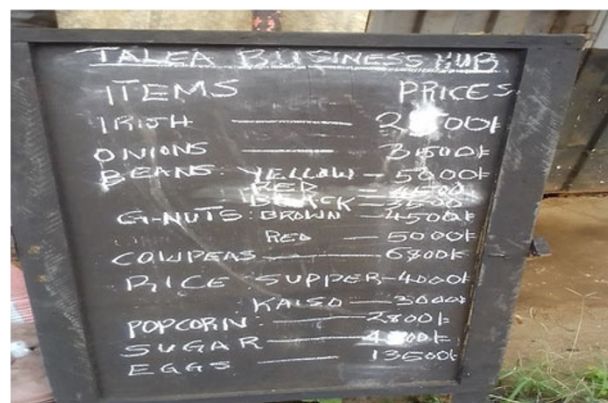 TALEA BUSINESS HUB
ITEMS PRICES
IRISH
ONIONS 3500/=
BEANS: YELLOW - 5000/=
RED - 4500
BLACK - 3500
G-NUTS: BROWN - 4500/=
RED - 5000/=
COWPEAS - 6800/=
RICE SUPPER - 4000/=
KAISO - 3000/=
POPCORN 2800/=
SUGAR
EGGS 13500/=